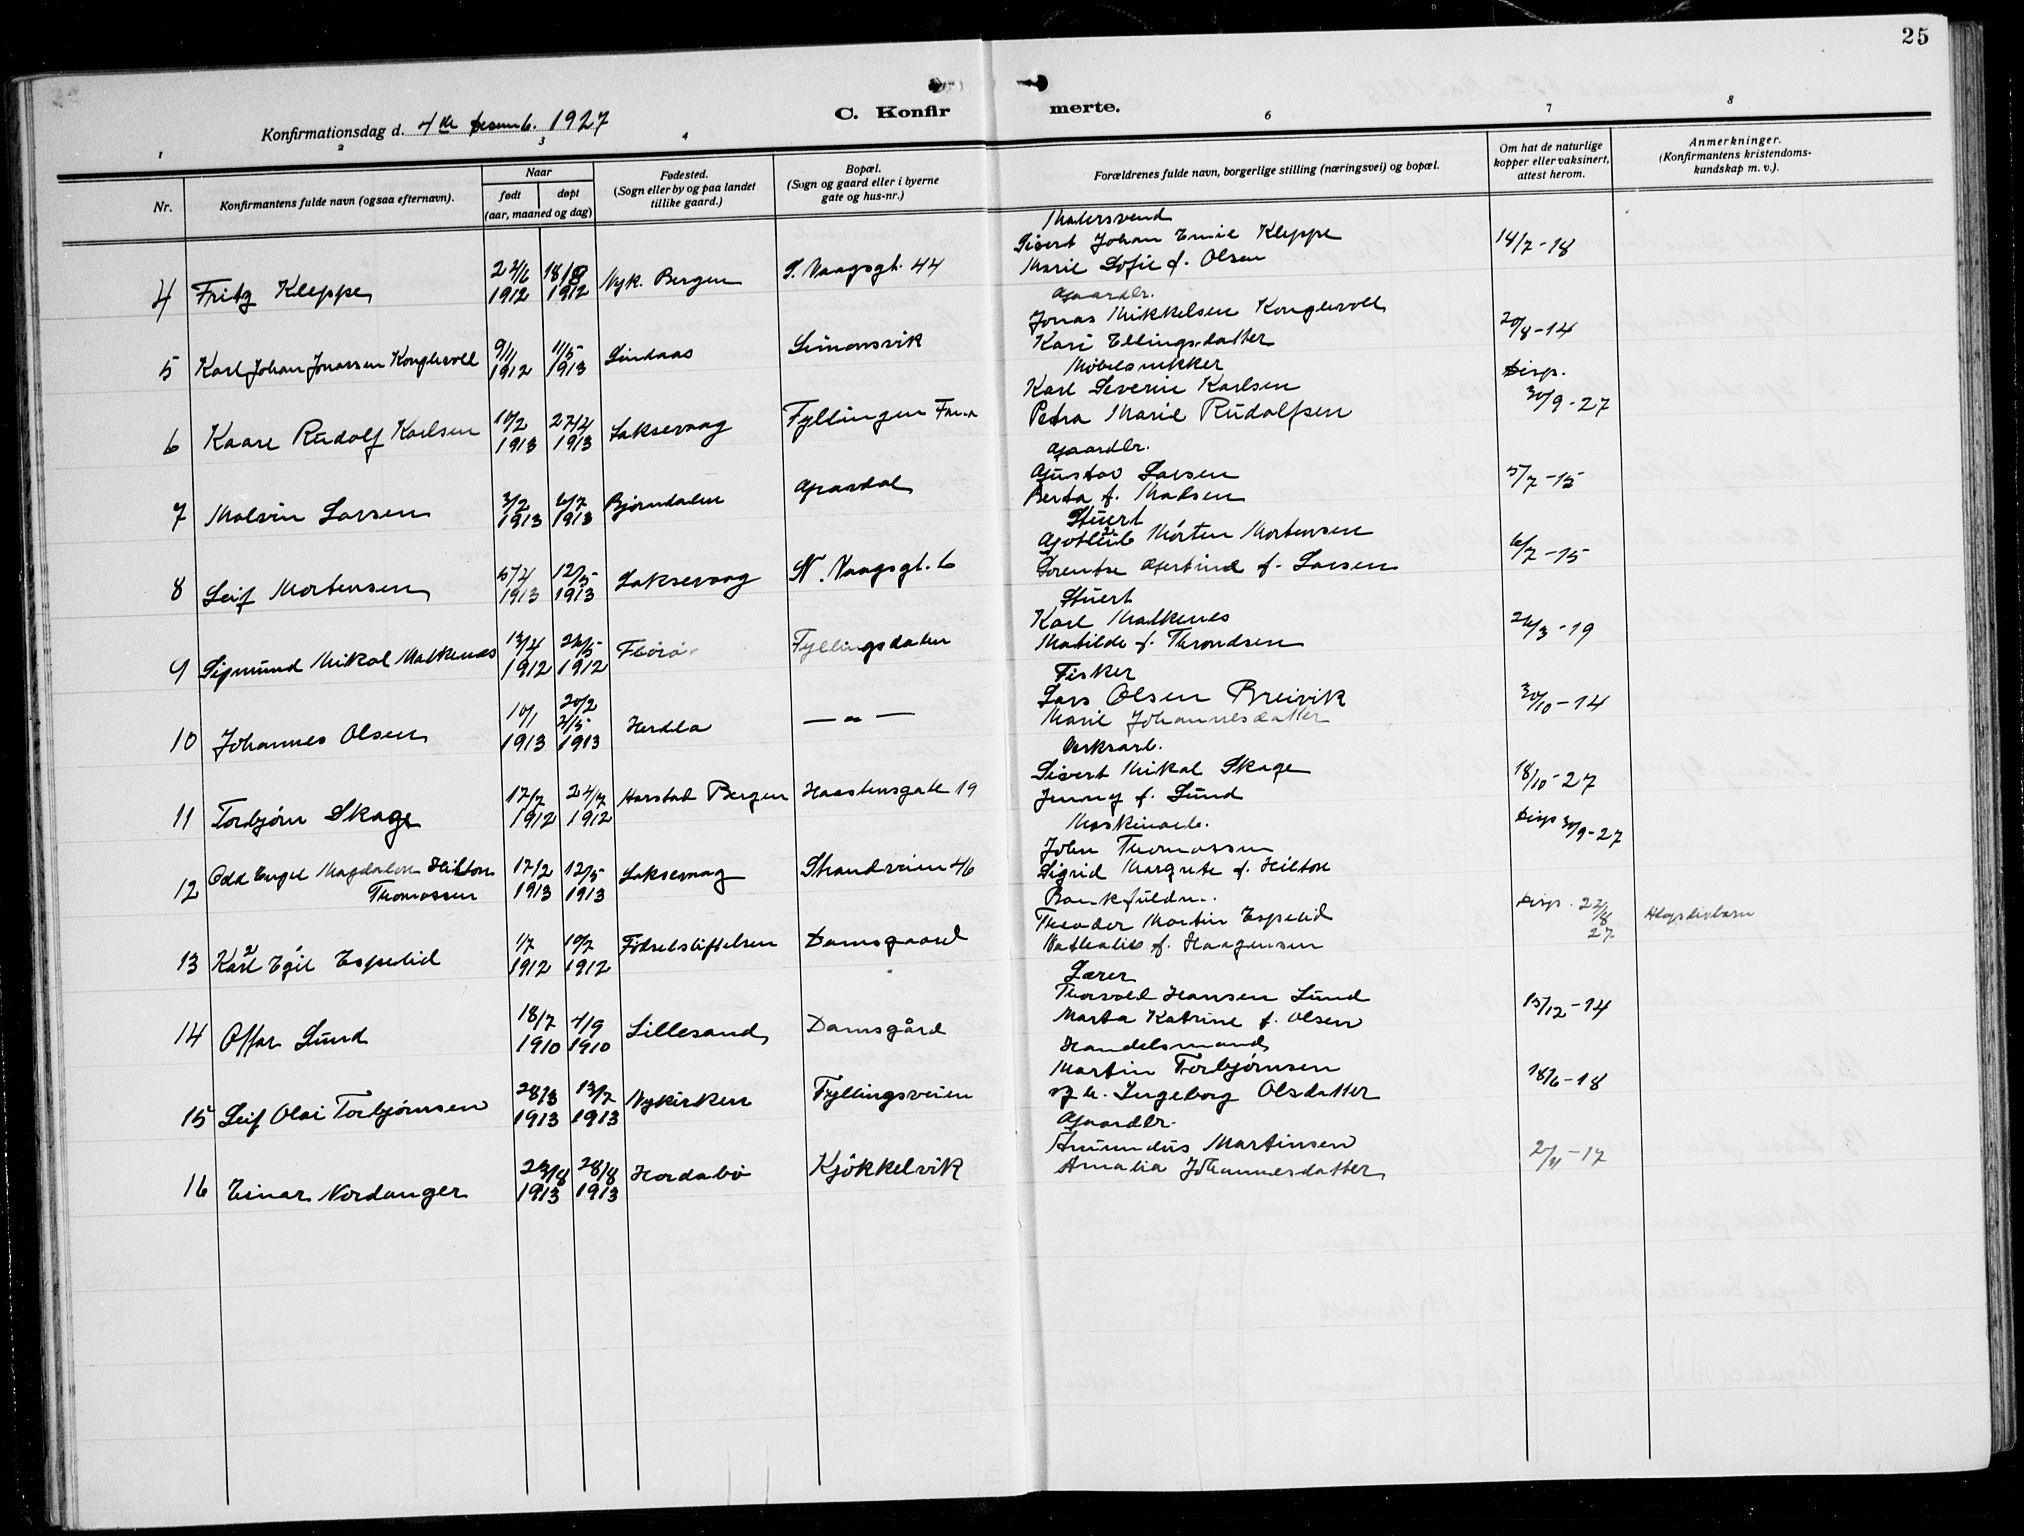 25
C. Konfirmerte.
Konfirmationsdag d. 4de Desemb. 1927
1 2 3 4 6 7 8
Nr.
Konfirmantens fulde navn (ogsaa efternavn).
Naar
født døpt
(aar, maaned og dag)
Fødested.
(Sogn eller by og paa landet
tillike gaard.)
Bopæl.
(Sogn og gaard eller i byerne
gate og hus-nr.)
Forældrenes fulde navn, borgerlige stilling (næringsvei) og bopæl.
Om hat de naturlige
kopper eller vaksinert,
attest herom.
Anmerkninger.
(Konfirmantens kristendoms-
kundskap m. v.).
Malersvend
Sivert Johan Emil Kleppe
Marie Sofie f. Olsen
14/7-18
4 Fritz Kleppe 1912 1912 Nyk. Bergen S. Vaagsgt. 44
Gaardbr.
Jonas Mikkelsen Konglevoll
Kari Ellingsdatter
20/8-14
5 Karl Johan Jonassen Konglevoll 9/11 1912 11/5 1913 Lindaas Simonsvik
Møbelsnekker
Karl Severin Karlsen
Petra Marie Rudolfsen
Disp.
30/9-27
6 Kaare Rudolf Karlsen 10/2 1913 27/4 1913 Laksevaag Fyllingen
Gaardbr.
Gustav Larsen
Berta f. Madsen
5/7-15
7 Malvin Larsen 3/2 1913 6/7 1913 Bjørndalen Grasdal
Stuert
Gotlieb Morten Mortensen
Lorentse Gjertine f. Larsen
6/7-15
8 Leif Mortensen 5/4 1913 12/5 1913 Laksevaag N. Vaagsgt. 6
Stuert
Karl Malkenes
Matilde f. Throndsen
26/3-19
9 Sigmund Mikal Malkenes 13/4 1912 26/5 1912 Florø Fyllingsdalen
Fisker
Lars Olsen Breivik
Marie Johannesdatter
30/10-14
10 Johannes Olsen 10/1 1913 20/2 4/5 1913 Herdla — " —
Verksarb.
Sivert Mikal Skage
Jenny f. Lund
18/10-27
11 Torbjørn Skage 17/7 1912 24/7 1912 Harstad Bergen Haastensgate 19
Maskinarb.
John Thomassen
Sigrid Margrete f. Hilton
Disp 30/9-27
12 Odd Engel Magdalon Hilton
Thomassen 17/2 1913 12/5 1913 Laksevaag Strandveien 46
Bankfuldm.
Theodor Martin Espelid
Nathalie f. Haagensen
Disp. 22/8
27
13 Karl Egil Espelid 1/7 1912 10/7 1912 Fødselstiftelsen Damsgaard
Lærer
Thorvald Hansen Lund
Marta Katrine f. Olsen
15/12-14
14 Lund 18/7 1910 4/9 1910 Lillesand Damsgård
Handelsmand
Martin Torbjørnsen
og h. Ingeborg Olsdatter
18/6-18
15 Leif Olai Torbjørnsen 28/3 1913 13/7 1913 Nykirken Fyllingsveien
Gaardbr.
Amundus Martinsen
Amalia Johannesdatter
2/11-17
16 Einar Nordanger 1913 28/8 1913 Hordabø Kjøkkelvik